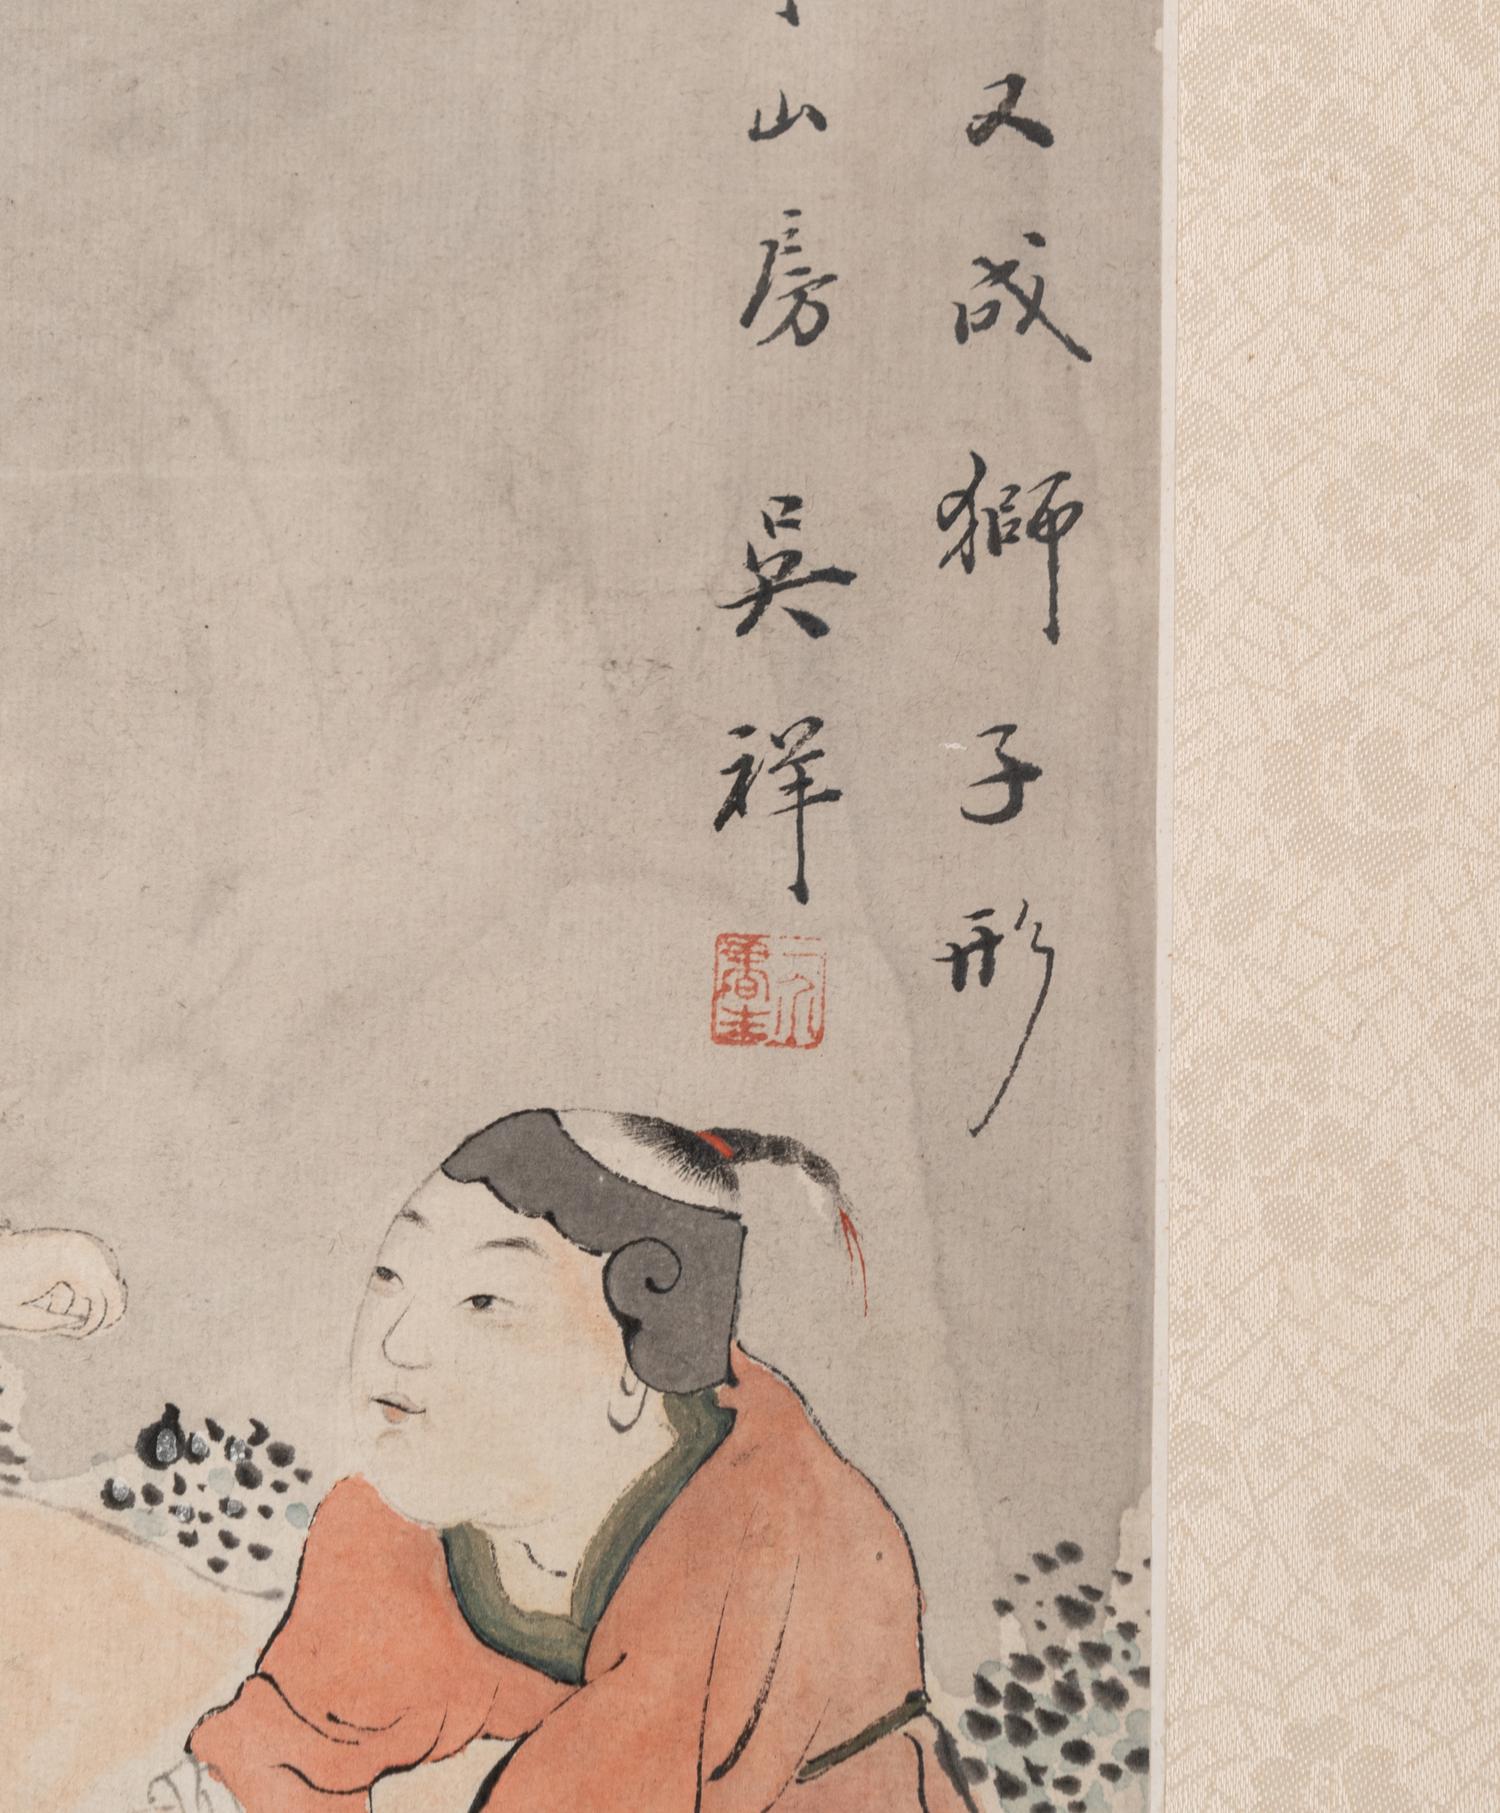 又成獅子形
山房吳祥